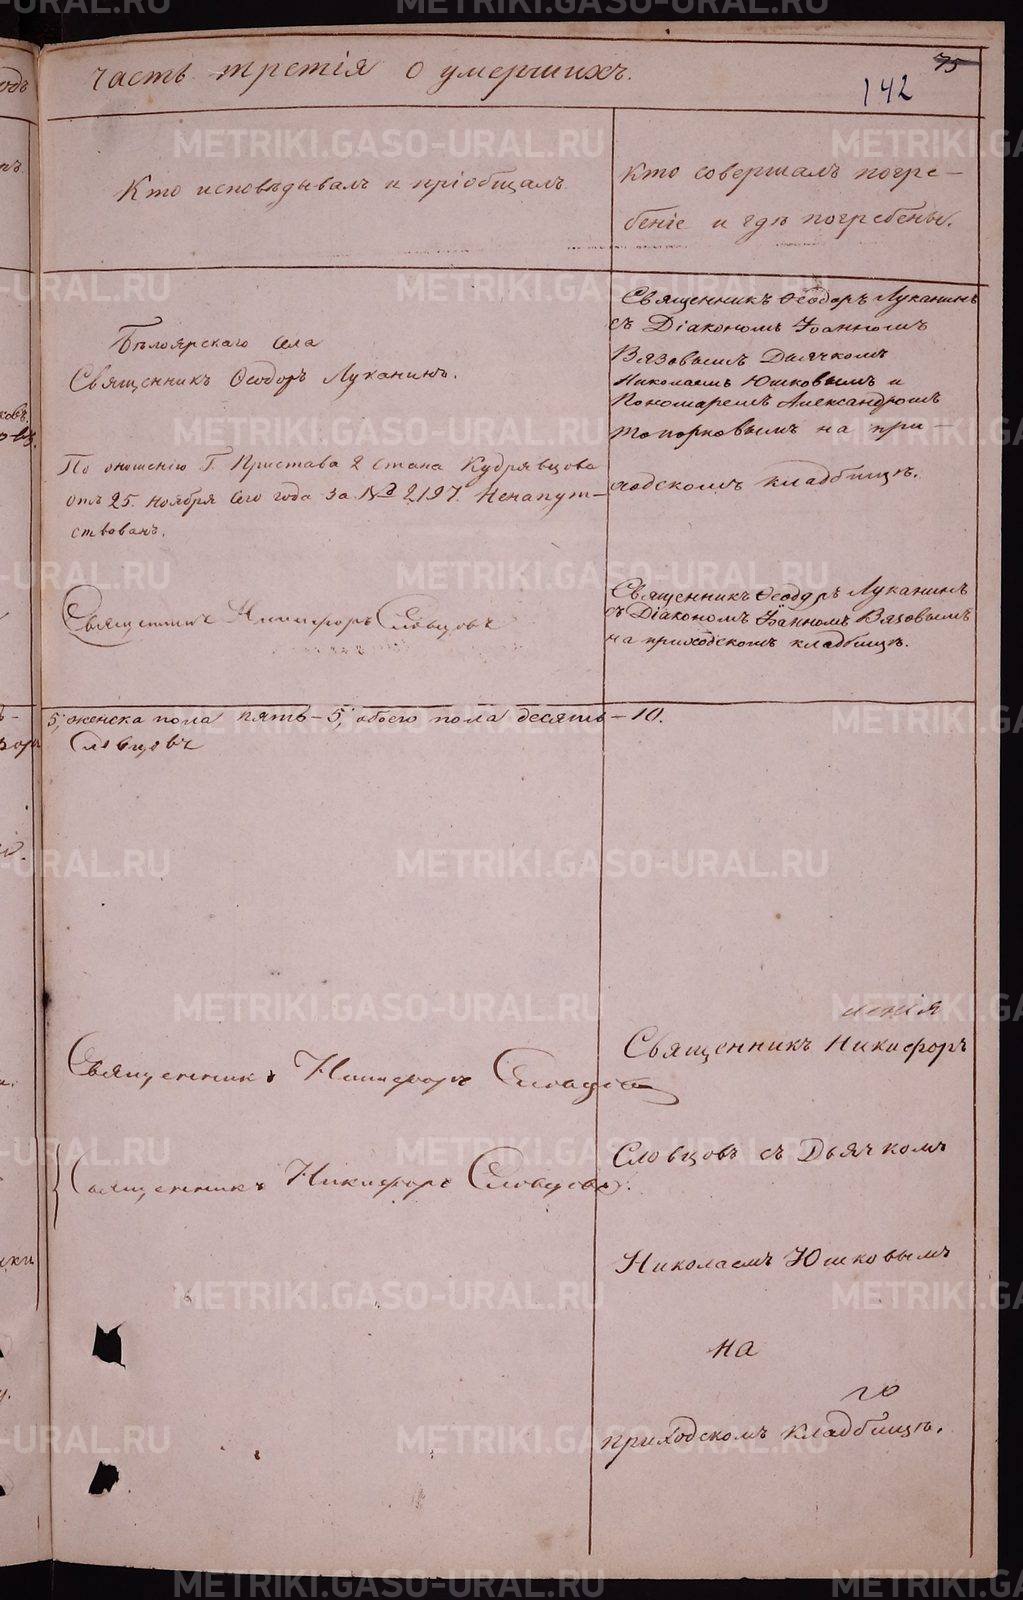 часть третія о умершихъ.
75
142
Кто исповѣдывалъ и пріобщалъ.
Кто совершалъ погре-
беніе и гдѣ погребены.
Бѣлоярскаго села
Священникъ Ѳеодоръ Луканинъ.
По отношенію Г. Пристава 2 стана Кудрявцова
отъ 25. ноября сего года за № 2197. Ненапут-
ствованъ.
Священникъ Никифоръ Словцовъ
Священникъ Ѳеодоръ Луканинъ
съ Діакономъ Іоанномъ
Вязовымъ Дьячкомъ
Николаемъ Юшковымъ и
Пономаремъ Александромъ
Топорковымъ на при-
ходскомъ кладбищѣ.
Священникъ Ѳеодоръ Луканинъ
съ Діакономъ Іоанномъ Вязовымъ
на приходскомъ кладбищѣ.
5, женска пола пять-5, обоего пола десять-10.
Словцовъ
Священникъ Никифоръ Словцовъ
Священникъ Никифоръ Словцовъ.
Священникъ Никифоръ
Словцовъ съ Дьячкомъ
Николаемъ Юшковымъ
на
го
приходскомъ кладбищѣ.
METRIKI.GASO-URAL.RU